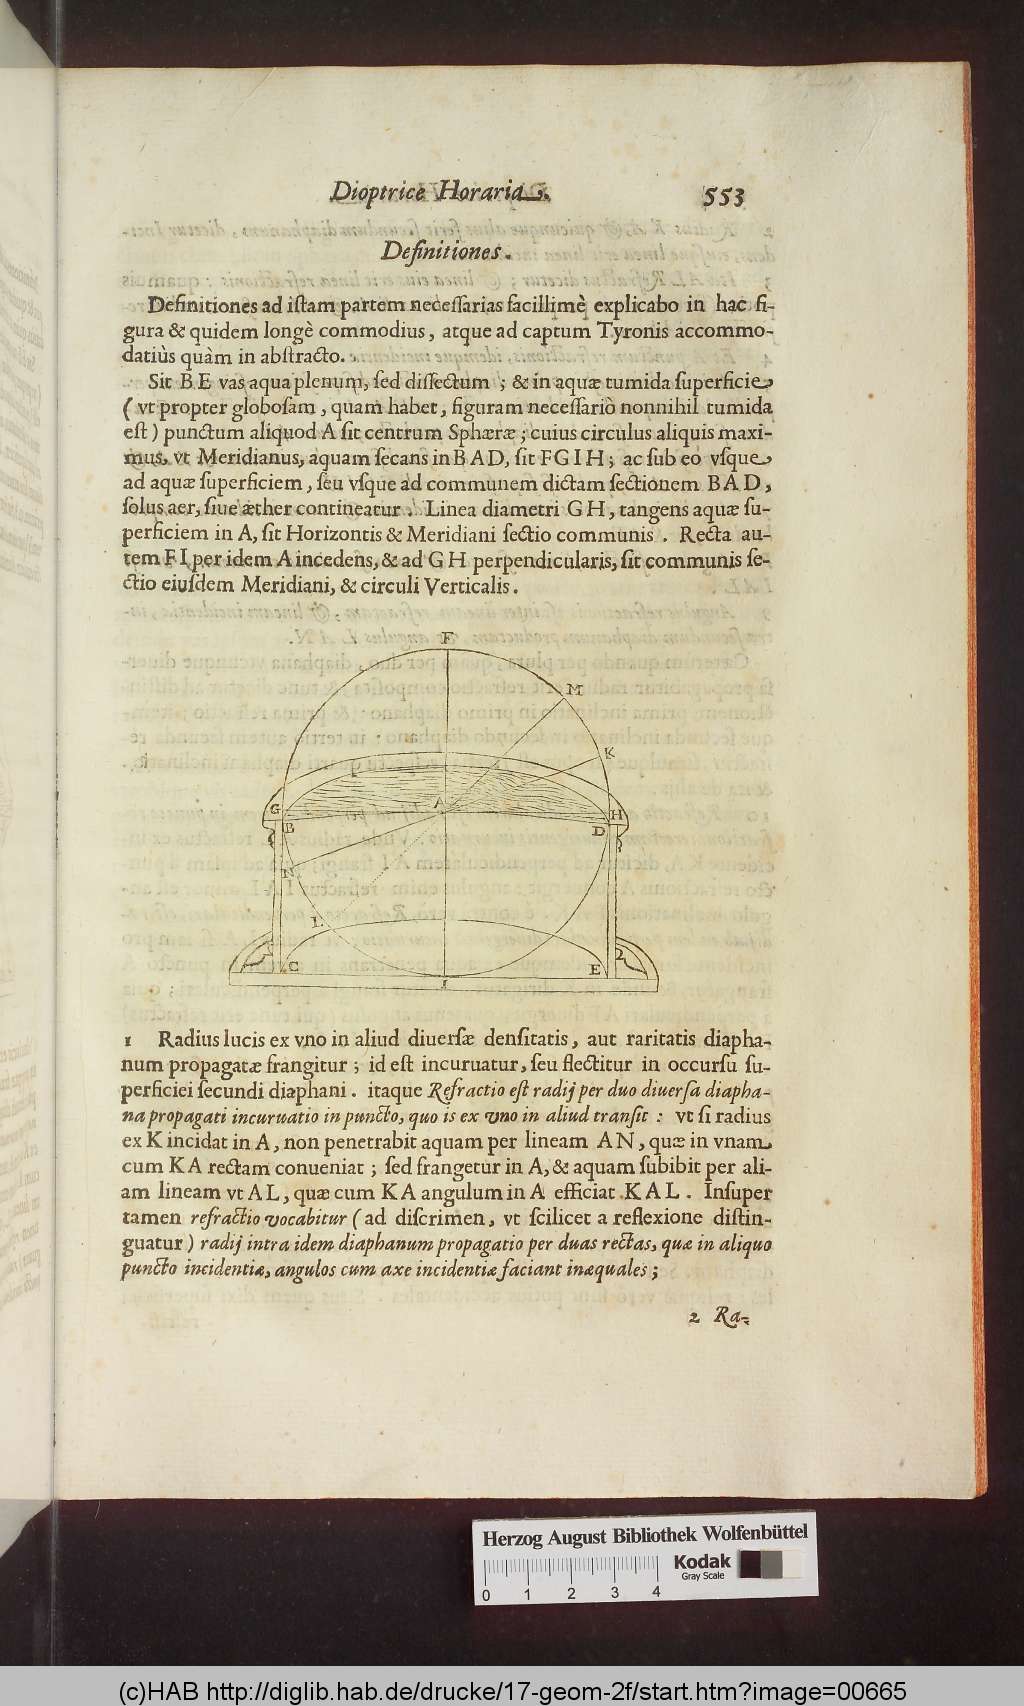 Dioptrice Horaria. 553
Definitiones.
Definitiones ad iſtam partem neceſſarias facillimè explicabo in hac fi-
gura & quidem longè commodius, atque ad captum Tyronis accommo-
datiùs quàm in abſtracto.
Sit B E vas aqua plenum, ſed diſſectum ; & in aquæ tumida ſuperficie
( vt propter globoſam, quam habet, figuram neceſſariò nonnihil tumida
eſt ) punctum aliquod A ſit centrum Sphæræ ; cuius circulus aliquis maxi-
mus, vt Meridianus, aquam ſecans in B A D, ſit F G I H ; ac ſub eo vſque
ad aquæ ſuperficiem, ſeu vſque ad communem dictam ſectionem B A D,
ſolus aer, ſiue æther contineatur. Linea diametri G H, tangens aquæ ſu-
perficiem in A, ſit Horizontis & Meridiani ſectio communis. Recta au-
tem F I per idem A incedens, & ad G H perpendicularis, ſit communis ſe-
ctio eiuſdem Meridiani, & circuli Verticalis.
F
M
K
G A H
B D
N
L
C E
I
1 Radius lucis ex vno in aliud diuerſæ denſitatis, aut raritatis diapha-
num propagatæ frangitur ; id eſt incuruatur, ſeu flectitur in occurſu ſu-
perficiei ſecundi diaphani. itaque Refractio eſt radij per duo diuerſa diapha-
na propagati incuruatio in puncto, quo is ex vno in aliud tranſit : vt ſi radius
ex K incidat in A, non penetrabit aquam per lineam A N, quæ in vnam
cum K A rectam conueniat ; ſed frangetur in A, & aquam ſubibit per ali-
am lineam vt A L, quæ cum K A angulum in A efficiat K A L. Inſuper
tamen refractio vocabitur ( ad diſcrimen, vt ſcilicet a reflexione diſtin-
guatur ) radij intra idem diaphanum propagatio per duas rectas, quæ in aliquo
puncto incidentiæ, angulos cum axe incidentiæ faciant inæquales ;
2 Ra-
Herzog August Bibliothek Wolfenbüttel
Kodak
Gray Scale
0 1 2 3 4
(c)HAB http://diglib.hab.de/drucke/17-geom-2f/start.htm?image=00665